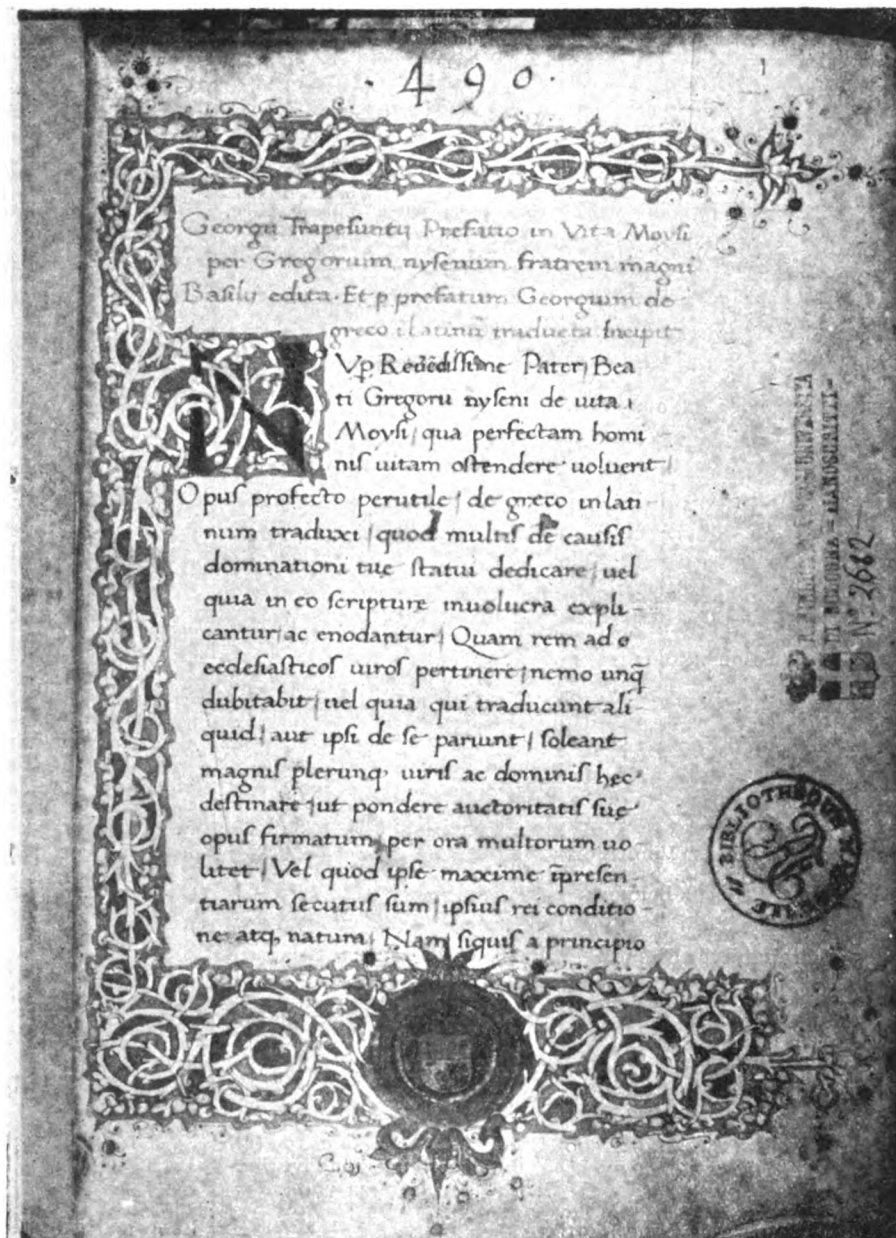 · 490 ·
1
Georgii Trapesuntij Prefatio in Vita Moysi
per Gregorium nysenum fratrem magni
Basilij edita. Et ꝑ prefatum Georgium de
greco ī latinū traducta Incipit
NVꝑ Reuēdissime Pater / Bea
ti Gregorii nyseni de uita
Moysi / qua perfectam homi
nis uitam ostendere uoluerit /
Opus profecto perutile / de greco in lati-
num traduxi / quod multis de causis
dominationi tuę statui dedicare / uel
quia in eo scripturę inuolucra expli-
cantur / ac enodantur / Quam rem ad
ecclesiasticos uiros pertinere / nemo unq̄
dubitabit / uel quia qui traducunt ali
quid / aut ipsi de se pariunt / soleant
magnis plerunq, uiris ac dominis hęc
destinare / ut pondere auctoritatis suę
opus firmatum, per ora multorum uo-
litet / Vel quod ipse maxime īpresen-
tiarum secutus sum / ipsius rei conditio-
ne atq, natura / Nam siquis a principio
R. UNIVERSITA
DI BOLOGNA - MANOSCRITTI -
Nº 2682
BIBLIOTHEQUE